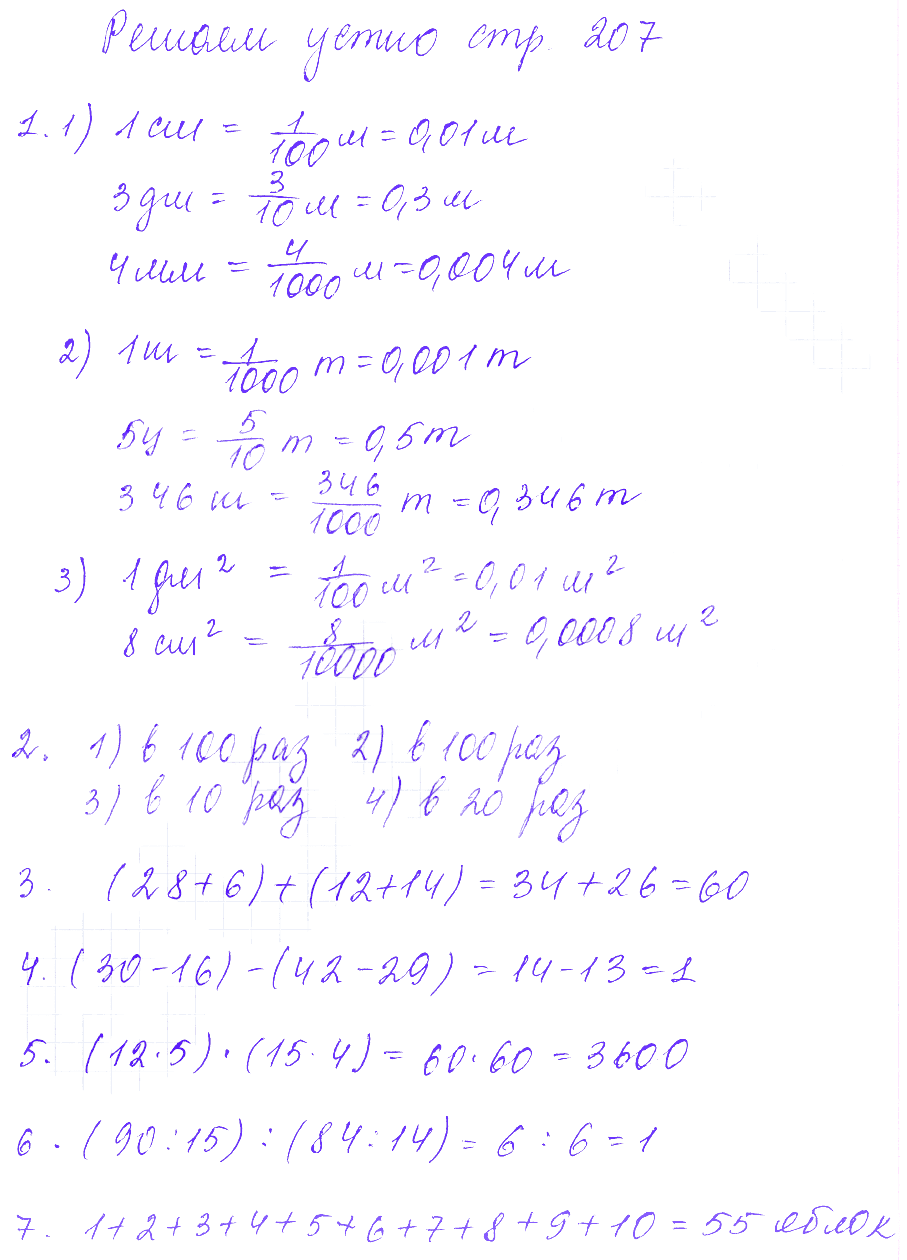 Решаем устно стр. 207
1. 1) 1 см = 1/100 м = 0,01 м
3 дм = 3/10 м = 0,3 м
4 мм = 4/1000 м = 0,004 м
2) 1 кг = 1/1000 т = 0,001 т
5 ц = 5/10 т = 0,5 т
346 кг = 346/1000 т = 0,346 т
3) 1 дм² = 1/100 м² = 0,01 м²
8 см² = 8/10000 м² = 0,0008 м²
2. 1) в 100 раз 2) в 100 раз
3) в 10 раз 4) в 20 раз
3. (28+6)+(12+14) = 34+26 = 60
4. (30-16)-(42-29) = 14-13 = 1
5. (12·5)·(15·4) = 60·60 = 3600
6. (90:15):(84:14) = 6:6 = 1
7. 1+2+3+4+5+6+7+8+9+10 = 55 яблок